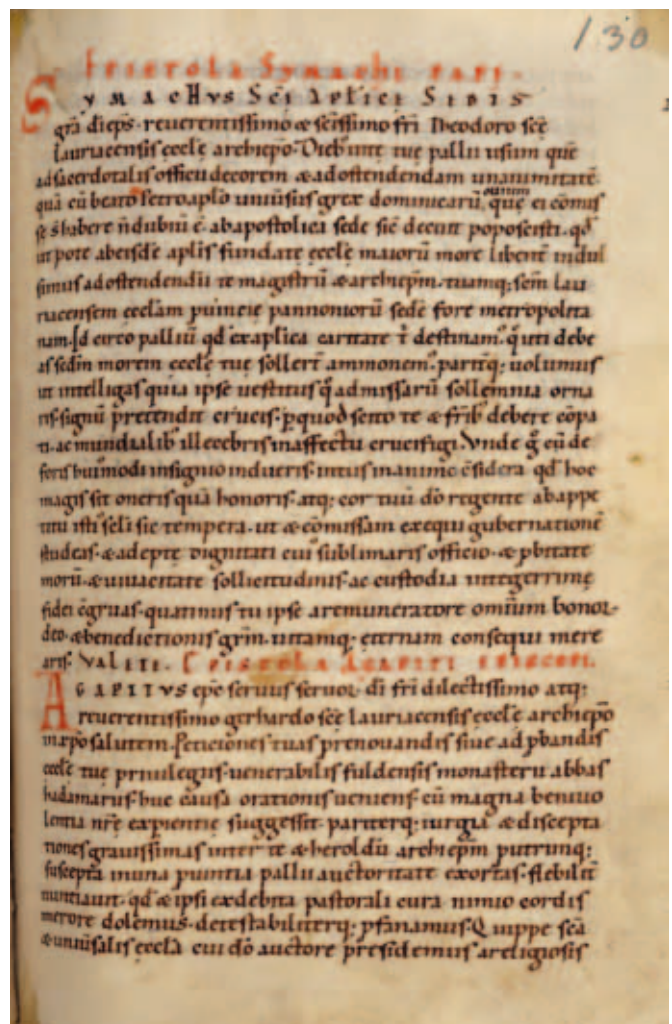 130
Epistola Symachi papę.
SYMACHVS Scī Aplīci Sedis
grā di ep̄s. reuerentissimo & scīssimo frī Theodoro scę
Lauriacensis ecclę archiep̄o. Diebus tuę pallii usum quē
ad sacerdotalis officii decorem & ad ostendendam unanimitatē
quā cū beato Petro aplō uniūsus grex dominicarū ouium que ei cōmis
sę s̄ habere n̄ dubiū ē. ab apostolica sede sic decuit poposcisti. qd̄
ut pote ab eisdē aplis fundatę ecclę maiorū more libent̄ indul
simus ad ostendendū te magistrū & archiep̄m. tuamq; scm̄ lau
riacensem ecclam puincię pannoniorū sedē fore metropolita
nam. Id circo palliū qd̄ ex aplica caritate t̄ destinam᷒ q̄ uti debe
as scdm̄ morem ecclę tuę sollert̄ ammonem᷒. parit̄q; uolumus
ut intelligas quia ipse uestitus q̄ ad missarū sollemnia orna
ris. signū p̄tendit crucis. p quod scito te & frib᷒ debere cōpa
ti. ac mundialib᷒ illecebris in affectu crucifigi. Vnde g̊ cū de
foris hui᷒modi insignio indueris. intus in animo c̄sidera qd̄ hoc
magis sit oneris quā honoris. atq; cor tuū dō regente ab appe
titu isti᷒ scli sic tempera. ut & cōmissam exequi gubernationē
studeas. & adeptę dignitati cui᷒ sublimaris officio. & pbitate
morū. & uiuacitate sollicitudinis. ac custodia integerrimę
fidei c̄gruas. quatinus tu ipse a remuneratore omnium bonoꝝ
deo. & benedictionis grām. uitamq; ęternam consequi mere
aris. VALETE. Epistola Agapiti
AGAPITVS epc̄ seruus seruoꝝ di frī dilectissimo atq;
reuerentissimo gerhardo scę lauriacensis ecclę archiep̄o
in xp̄o salutem. Peticiones tuas p renouandis siue ad pbandis
ecclę tuę priuilegiis. uenerabilis fuldensis monasterii abbas
hadamarus. huc causa orationis ueniens. cū magna beniuo
lentia nrę sapientię suggessit. pariterq; iurgia & discepta
tiones grauissimas inter te & heroldū archiep̄m p utrunq;
suscepta in una puintia pallii auctoritate exortas. flebilit̄
nuntiauit. qd̄ & ipsi ex debita pastorali cura nimio cordis
merore dolemus. detestabiliterq; p̄fanamus. Quippe scā
& uniūsalis ecclā cui dō auctore presidemus a religiosis